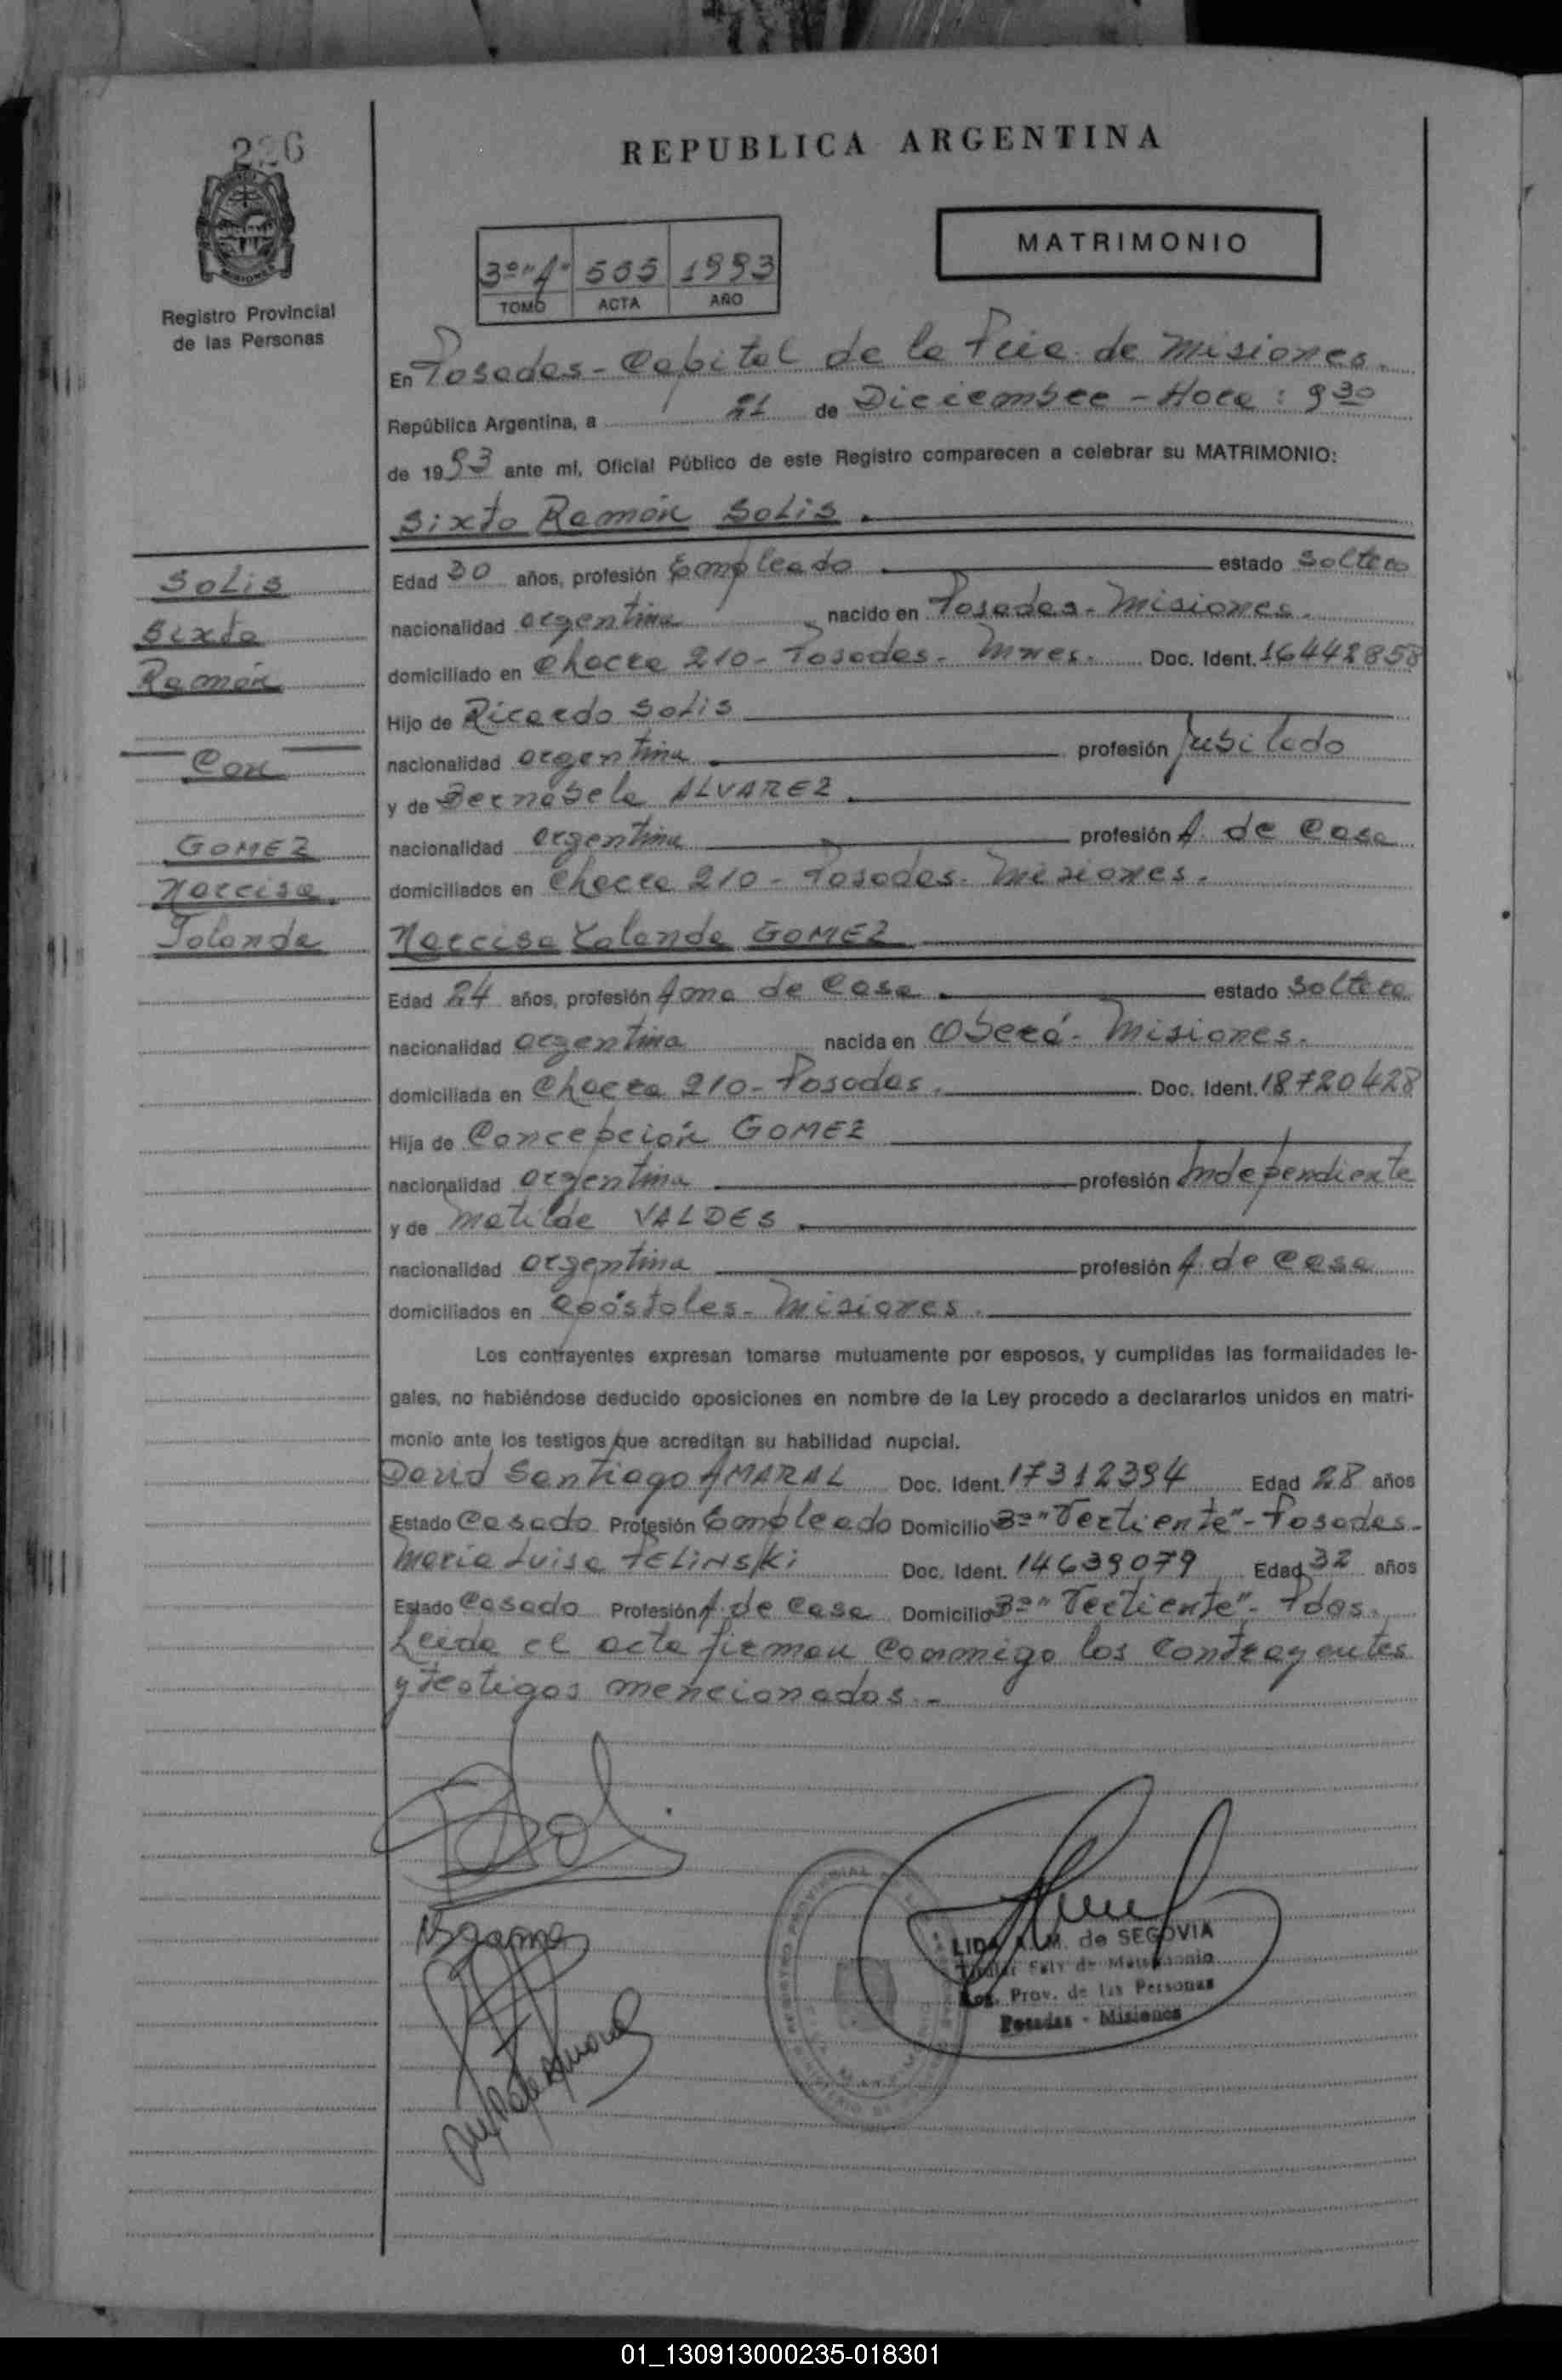 226
REPUBLICA ARGENTINA
MATRIMONIO
3º "A" 505 1993
TOMO ACTA AÑO
Registro Provincial
de las Personas
En Posadas - Capital de la Pcia. de Misiones.
República Argentina, a 21 de Diciembre - Hora: 9 30
de 1993 ante mi, Oficial Público de este Registro comparecen a celebrar su MATRIMONIO:
Sixto Ramón SOLIS.
SOLIS
Sixto
Ramón
Con
GOMEZ
Narcisa
Yolanda
Edad 30 años, profesión Empleado estado Soltero
nacionalidad argentina nacido en Posadas - Misiones.
domiciliado en Chacra 210 - Posadas - Mnes. Doc. Ident. 16442858
Hijo de Ricardo SOLIS
nacionalidad argentina profesión Jubilado
y de Bernabela ALVAREZ
nacionalidad argentina profesión A. de Casa
domiciliados en Chacra 210 - Posadas - Misiones.
Narcisa Yolanda GOMEZ
Edad 24 años, profesión Ama de Casa estado Soltera
nacionalidad argentina nacida en Oberá - Misiones.
domiciliada en Chacra 210 - Posadas. Doc. Ident. 18720428
Hija de Concepción GOMEZ
nacionalidad argentina profesión Independiente
y de Matilde VALDES
nacionalidad argentina profesión A. de Casa
domiciliados en Apóstoles - Misiones.
Los contrayentes expresan tomarse mutuamente por esposos, y cumplidas las formalidades le-
gales, no habiéndose deducido oposiciones en nombre de la Ley procedo a declararlos unidos en matri-
monio ante los testigos que acreditan su habilidad nupcial.
David Santiago AMARAL Doc. Ident. 17312394 Edad 28 años
Estado Casado Profesión Empleado Domicilio Bº "Vertiente" - Posadas.
Maria Luisa PELINSKI Doc. Ident. 14639079 Edad 32 años
Estado Casado Profesión A. de Casa Domicilio Bº "Vertiente" - Pdas.
Leida el acta firman conmigo los contrayentes
y testigos mencionados.-
LIDA A. M. de SEGOVIA
Reg. Prov. de las Personas
Posadas - Misiones
01_130913000235-018301